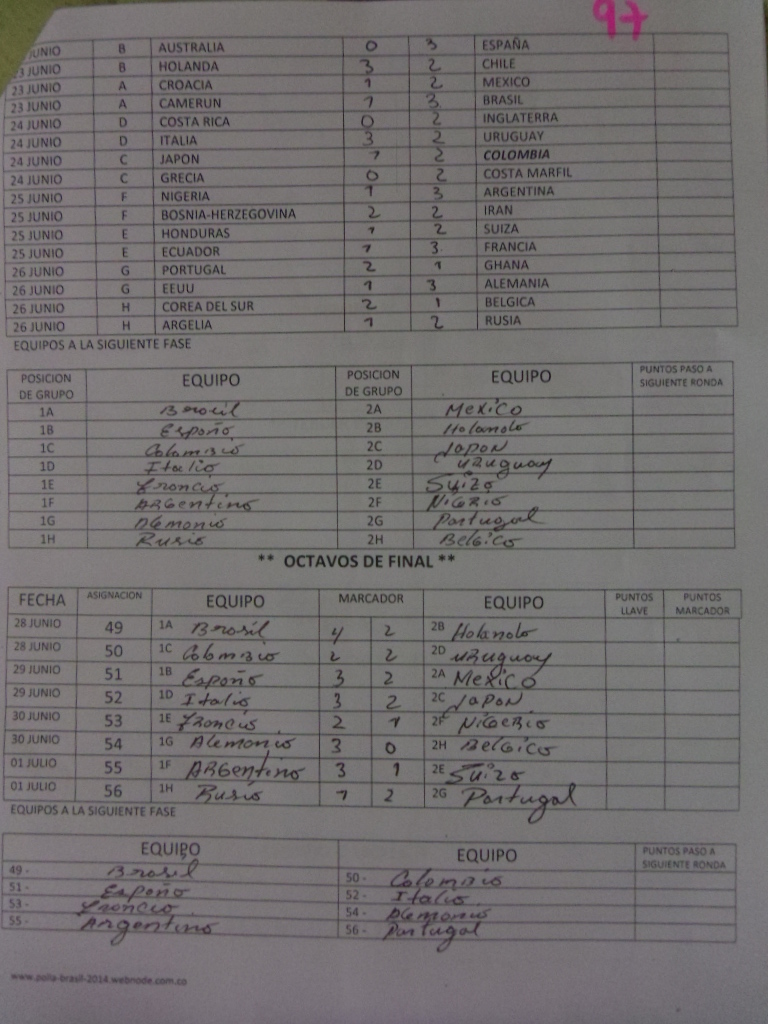 97
JUNIO B AUSTRALIA 0 3 ESPAÑA
23 JUNIO B HOLANDA 3 2 CHILE
23 JUNIO A CROACIA 1 2 MEXICO
23 JUNIO A CAMERUN 1 3 BRASIL
24 JUNIO D COSTA RICA 0 2 INGLATERRA
24 JUNIO D ITALIA 3 2 URUGUAY
24 JUNIO C JAPON 1 2 COLOMBIA
24 JUNIO C GRECIA 0 2 COSTA MARFIL
25 JUNIO F NIGERIA 1 3 ARGENTINA
25 JUNIO F BOSNIA-HERZEGOVINA 2 2 IRAN
25 JUNIO E HONDURAS 1 2 SUIZA
25 JUNIO E ECUADOR 1 3 FRANCIA
26 JUNIO G PORTUGAL 2 1 GHANA
26 JUNIO G EEUU 1 3 ALEMANIA
26 JUNIO H COREA DEL SUR 2 1 BELGICA
26 JUNIO H ARGELIA 1 2 RUSIA
EQUIPOS A LA SIGUIENTE FASE
POSICION DE GRUPO EQUIPO POSICION DE GRUPO EQUIPO PUNTOS PASO A SIGUIENTE RONDA
1A Brasil 2A Mexico
1B España 2B Holanda
1C Colombia 2C Japon
1D Italia 2D Uruguay
1E Francia 2E Suiza
1F Argentina 2F Nigeria
1G Alemania 2G Portugal
1H Rusia 2H Belgica
** OCTAVOS DE FINAL **
FECHA ASIGNACION EQUIPO MARCADOR EQUIPO PUNTOS LLAVE PUNTOS MARCADOR
28 JUNIO 49 1A Brasil 4 2 2B Holanda
28 JUNIO 50 1C Colombia 2 2 2D Uruguay
29 JUNIO 51 1B España 3 2 2A Mexico
29 JUNIO 52 1D Italia 3 2 2C Japon
30 JUNIO 53 1E Francia 2 1 2F Nigeria
30 JUNIO 54 1G Alemania 3 0 2H Belgica
01 JULIO 55 1F Argentina 3 1 2E Suiza
01 JULIO 56 1H Rusia 1 2 2G Portugal
EQUIPOS A LA SIGUIENTE FASE
EQUIPO EQUIPO PUNTOS PASO A SIGUIENTE RONDA
49 - Brasil 50 - Colombia
51 - España 52 - Italia
53 - Francia 54 - Alemania
55 - Argentina 56 - Portugal
www.polla-brasil-2014.webnode.com.co